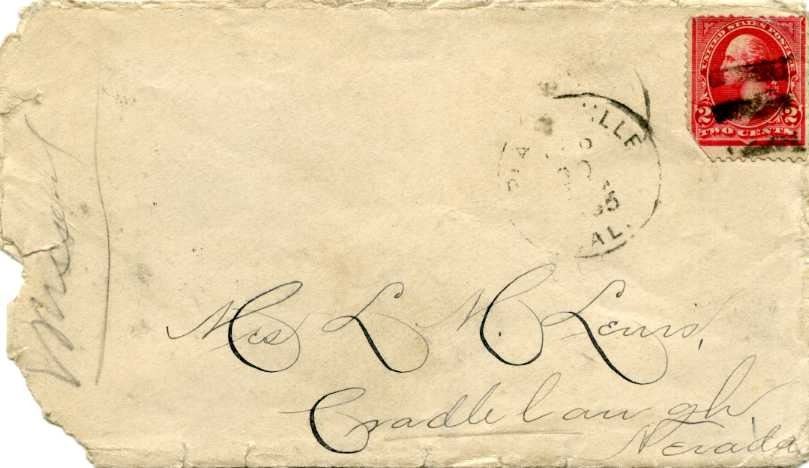 UNITED STATES POSTAGE
2 2
TWO CENTS
VILLE
95
CAL.
Missent
Mrs L. M. Lewis,
Cradlebaugh,
Nevada